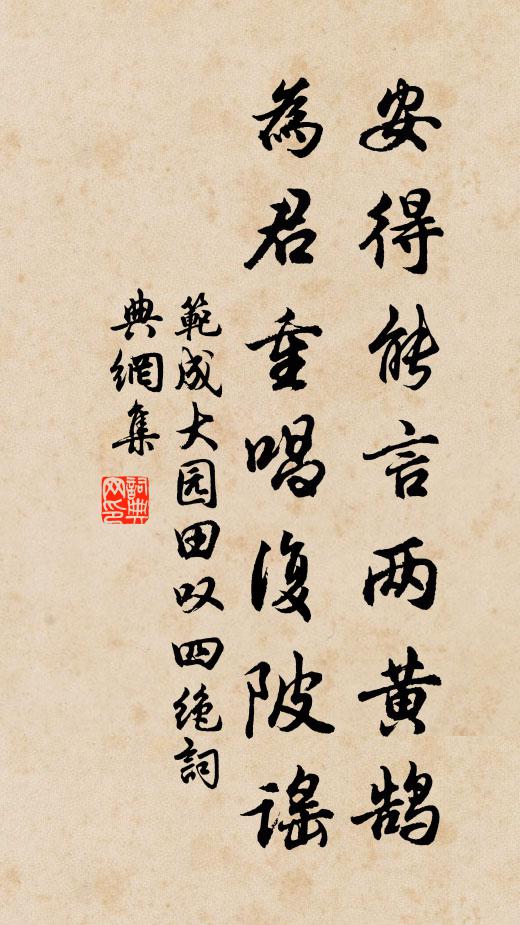 安得能言两黄鹄
為君重唱復陂谣
範成大园田叹四绝詞
典網集
詞典网印